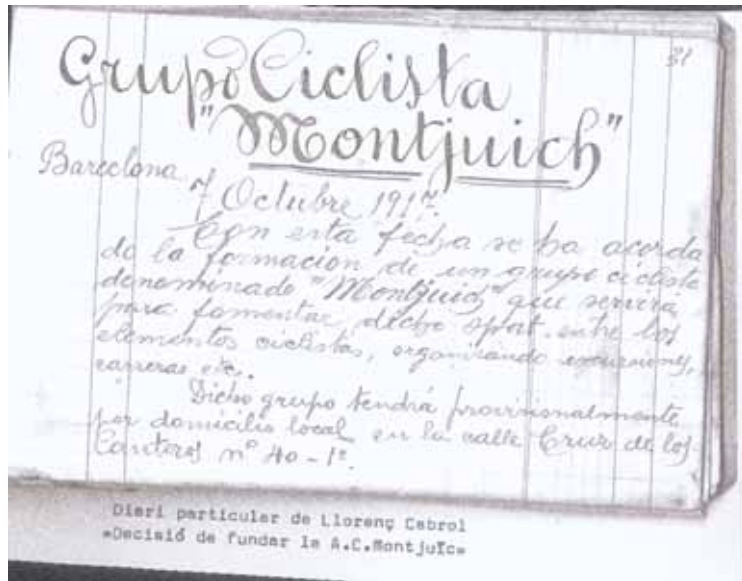 31
Grupo Ciclista
"Montjuich"
Barcelona 7 Octubre 1917.
Con esta fecha se ha acorda
do la formación de un grupo ciclista
denominado "Montjuich" que servirá
para fomentar dicho sport entre los
elementos ciclistas, organizando excursiones,
carreras etc.
Dicho grupo tendrá provisionalmente
por domicilio local en la calle Cruz de los
Canteros nº 40-1º.
Diari particular de Llorenç Cabrol
«Decisió de fundar la A.C.Montjuïc»